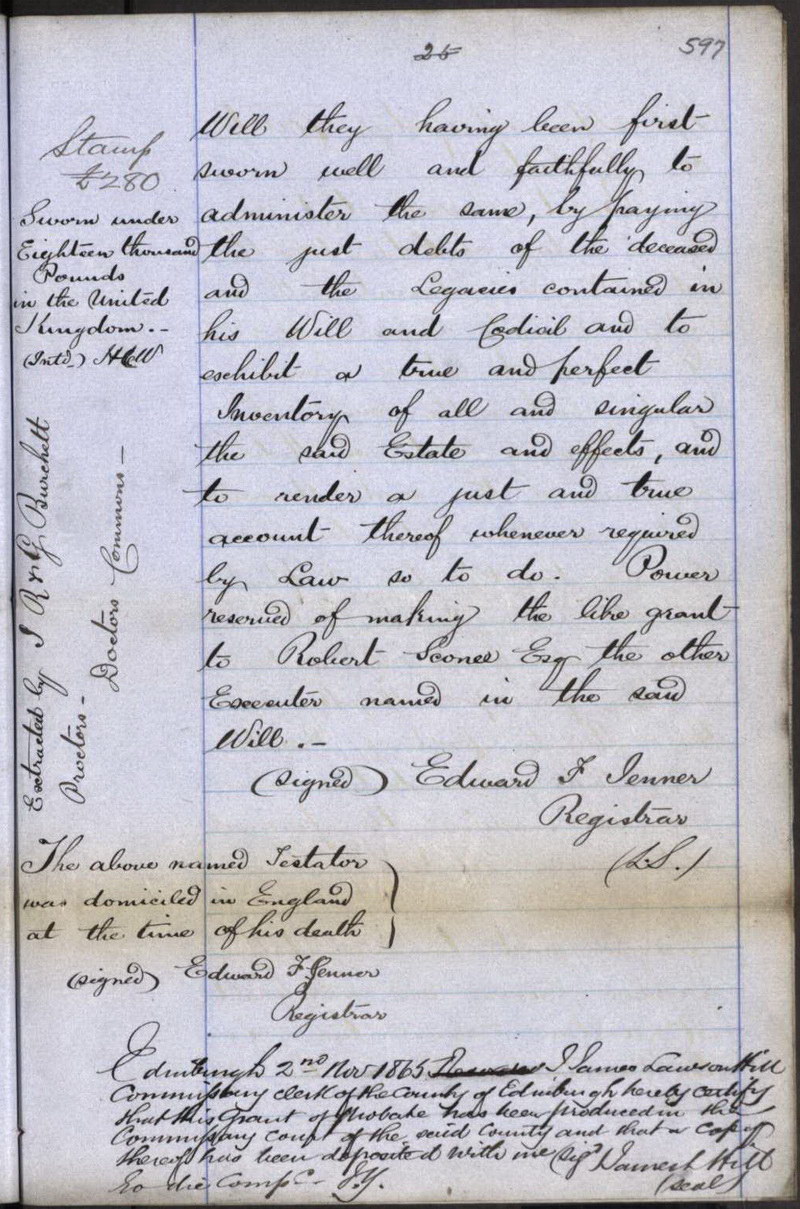 25
597
Will they having been first
sworn well and faithfully to
administer the same, by paying
the just debts of the deceased
and the Legacies contained in
his Will and Codicil and to
exhibit a true and perfect
Inventory of all and singular
the said Estate and effects, and
to render a just and true
account thereof whenever required
by Law so to do. Power
reserved of making the like grant
to Robert Sconce Esq the other
Executer named in the said
Will.-
(signed) Edward F Jenner
Registrar
(L.S.)
Stamp
£280
Sworn under
Eighteen thousand
Pounds
in the United
Kingdom.-
(Intd.)
Extracted by I R & G Burchett
Proctors-
Doctors Commons-
The above named Testator
was domiciled in England
at the time of his death
(signed) Edward F. Jenner
Registrar
Edinburgh 2nd Nov 1865 I James Lawson Hill
Commissary clerk of the County of Edinburgh hereby certify
that this Grant of Probate has been produced in the
Commissary court of the said County and that a copy
thereof has been deposited with me Sigd James L Hill
Eo die Compd. (seal)